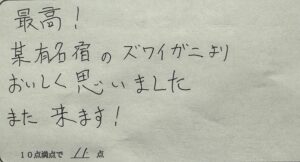 最高!
某有名宿のズワイガニより
おいしく思いました
また来ます!
10点満点で 11 点